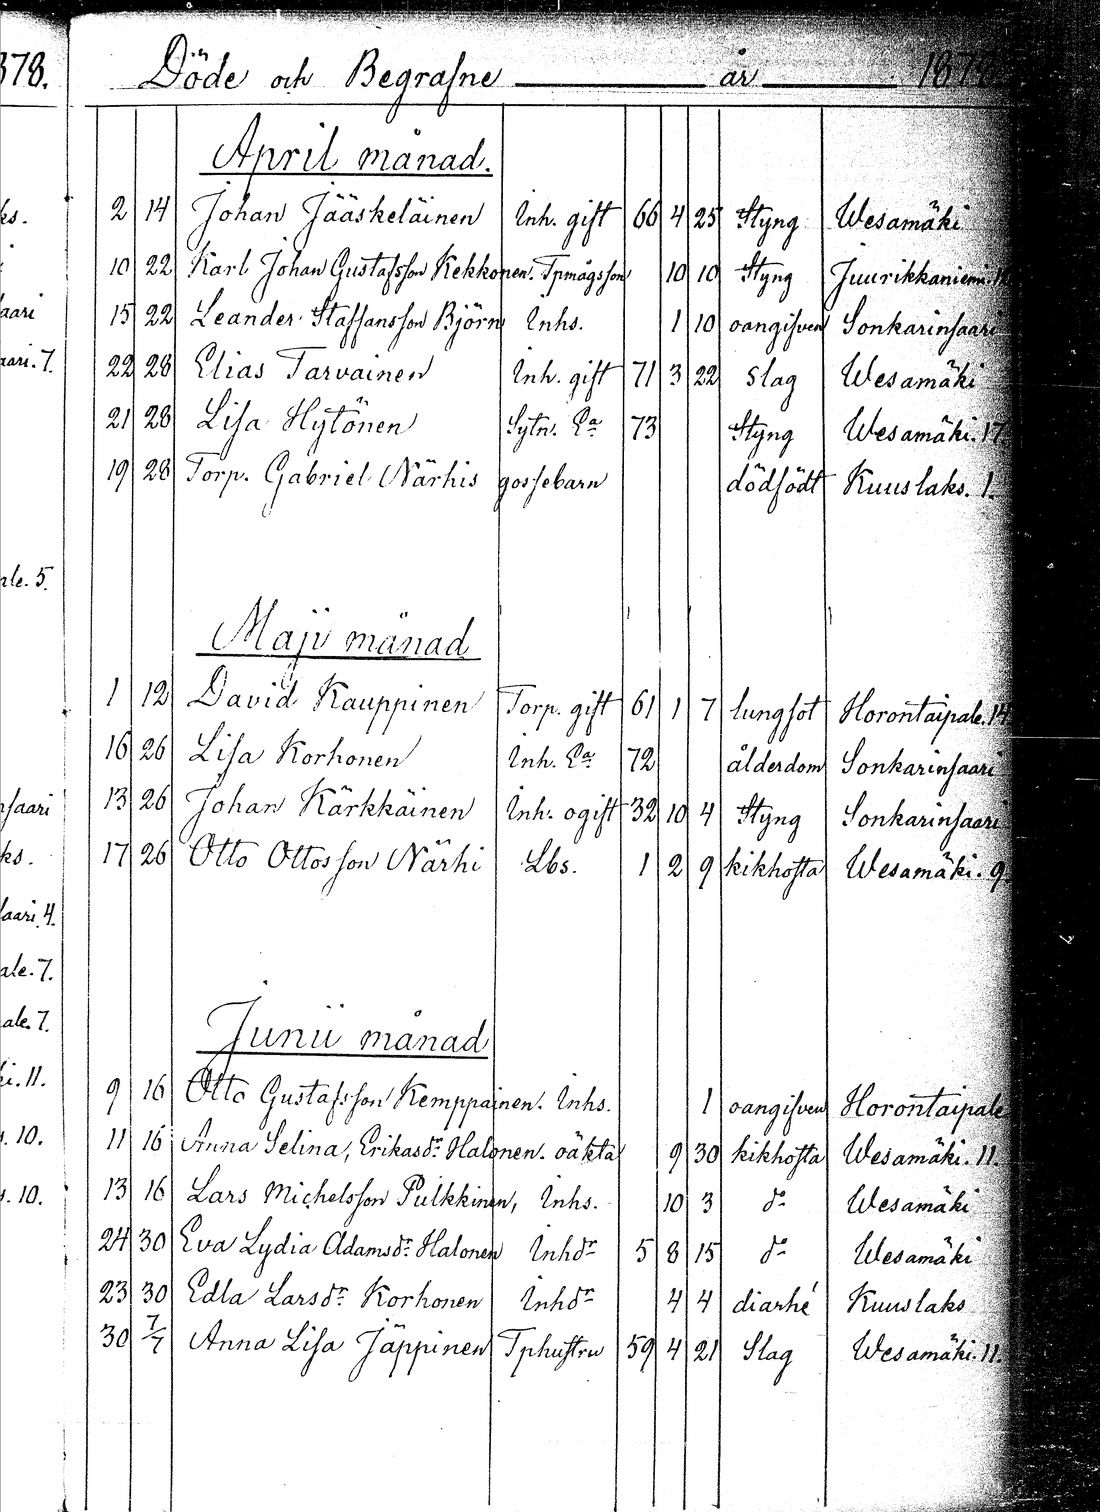 378.
Döde och Begrafne år 187
April månad.
ks.
2 14 Johan Jääskeläinen Inh. gift 66 4 25 Styng Wesamäki
10 22 Karl Johan Gustafsson Kekkonen. Tpmågsson 10 10 Styng Juurikkaniemi.
aari 15 22 Leander Staffansson Björn Inhs. 1 10 oangifven Sonkarinsaari
aari. 7. 22 28 Elias Tarvainen Inh. gift 71 3 22 Slag Wesamäki
21 28 Lisa Hytönen Sytn. Ea 73 Styng Wesamäki. 17
19 28 Torp. Gabriel Närhis gossebarn dödfödt Kuuslaks. 1.
ale. 5.
Maji månad
1 12 David Kauppinen Torp. gift 61 1 7 lungsot Horontaipale. 14
16 26 Lisa Korhonen Inh. Ea 72 ålderdom Sonkarinsaari
nsaari 13 26 Johan Kärkkäinen Inh. ogift 32 10 4 Styng Sonkarinsaari
ks. 17 26 Otto Ottosson Närhi Lbs. 1 2 9 kikhosta Wesamäki. 9.
saari. 4.
ale. 7.
ale. 7.
Junii månad
ki. 11. 9 16 Otto Gustafsson Kemppainen. Inhs. 1 oangifven Horontaipale
s. 10. 11 16 Anna Selina, Erikasdr Halonen. oäkta 9 30 kikhosta Wesamäki. 11.
s. 10. 13 16 Lars Michelsson Pulkkinen, Inhs. 10 3 do Wesamäki
24 30 Eva Lydia Adamsdr Halonen Inhdr 5 8 15 do Wesamäki
23 30 Edla Larsdr Korhonen Inhdr 4 4 diarhé Kuuslaks
30 7/7 Anna Lisa Jäppinen Tphustru 59 4 21 Slag Wesamäki. 11.